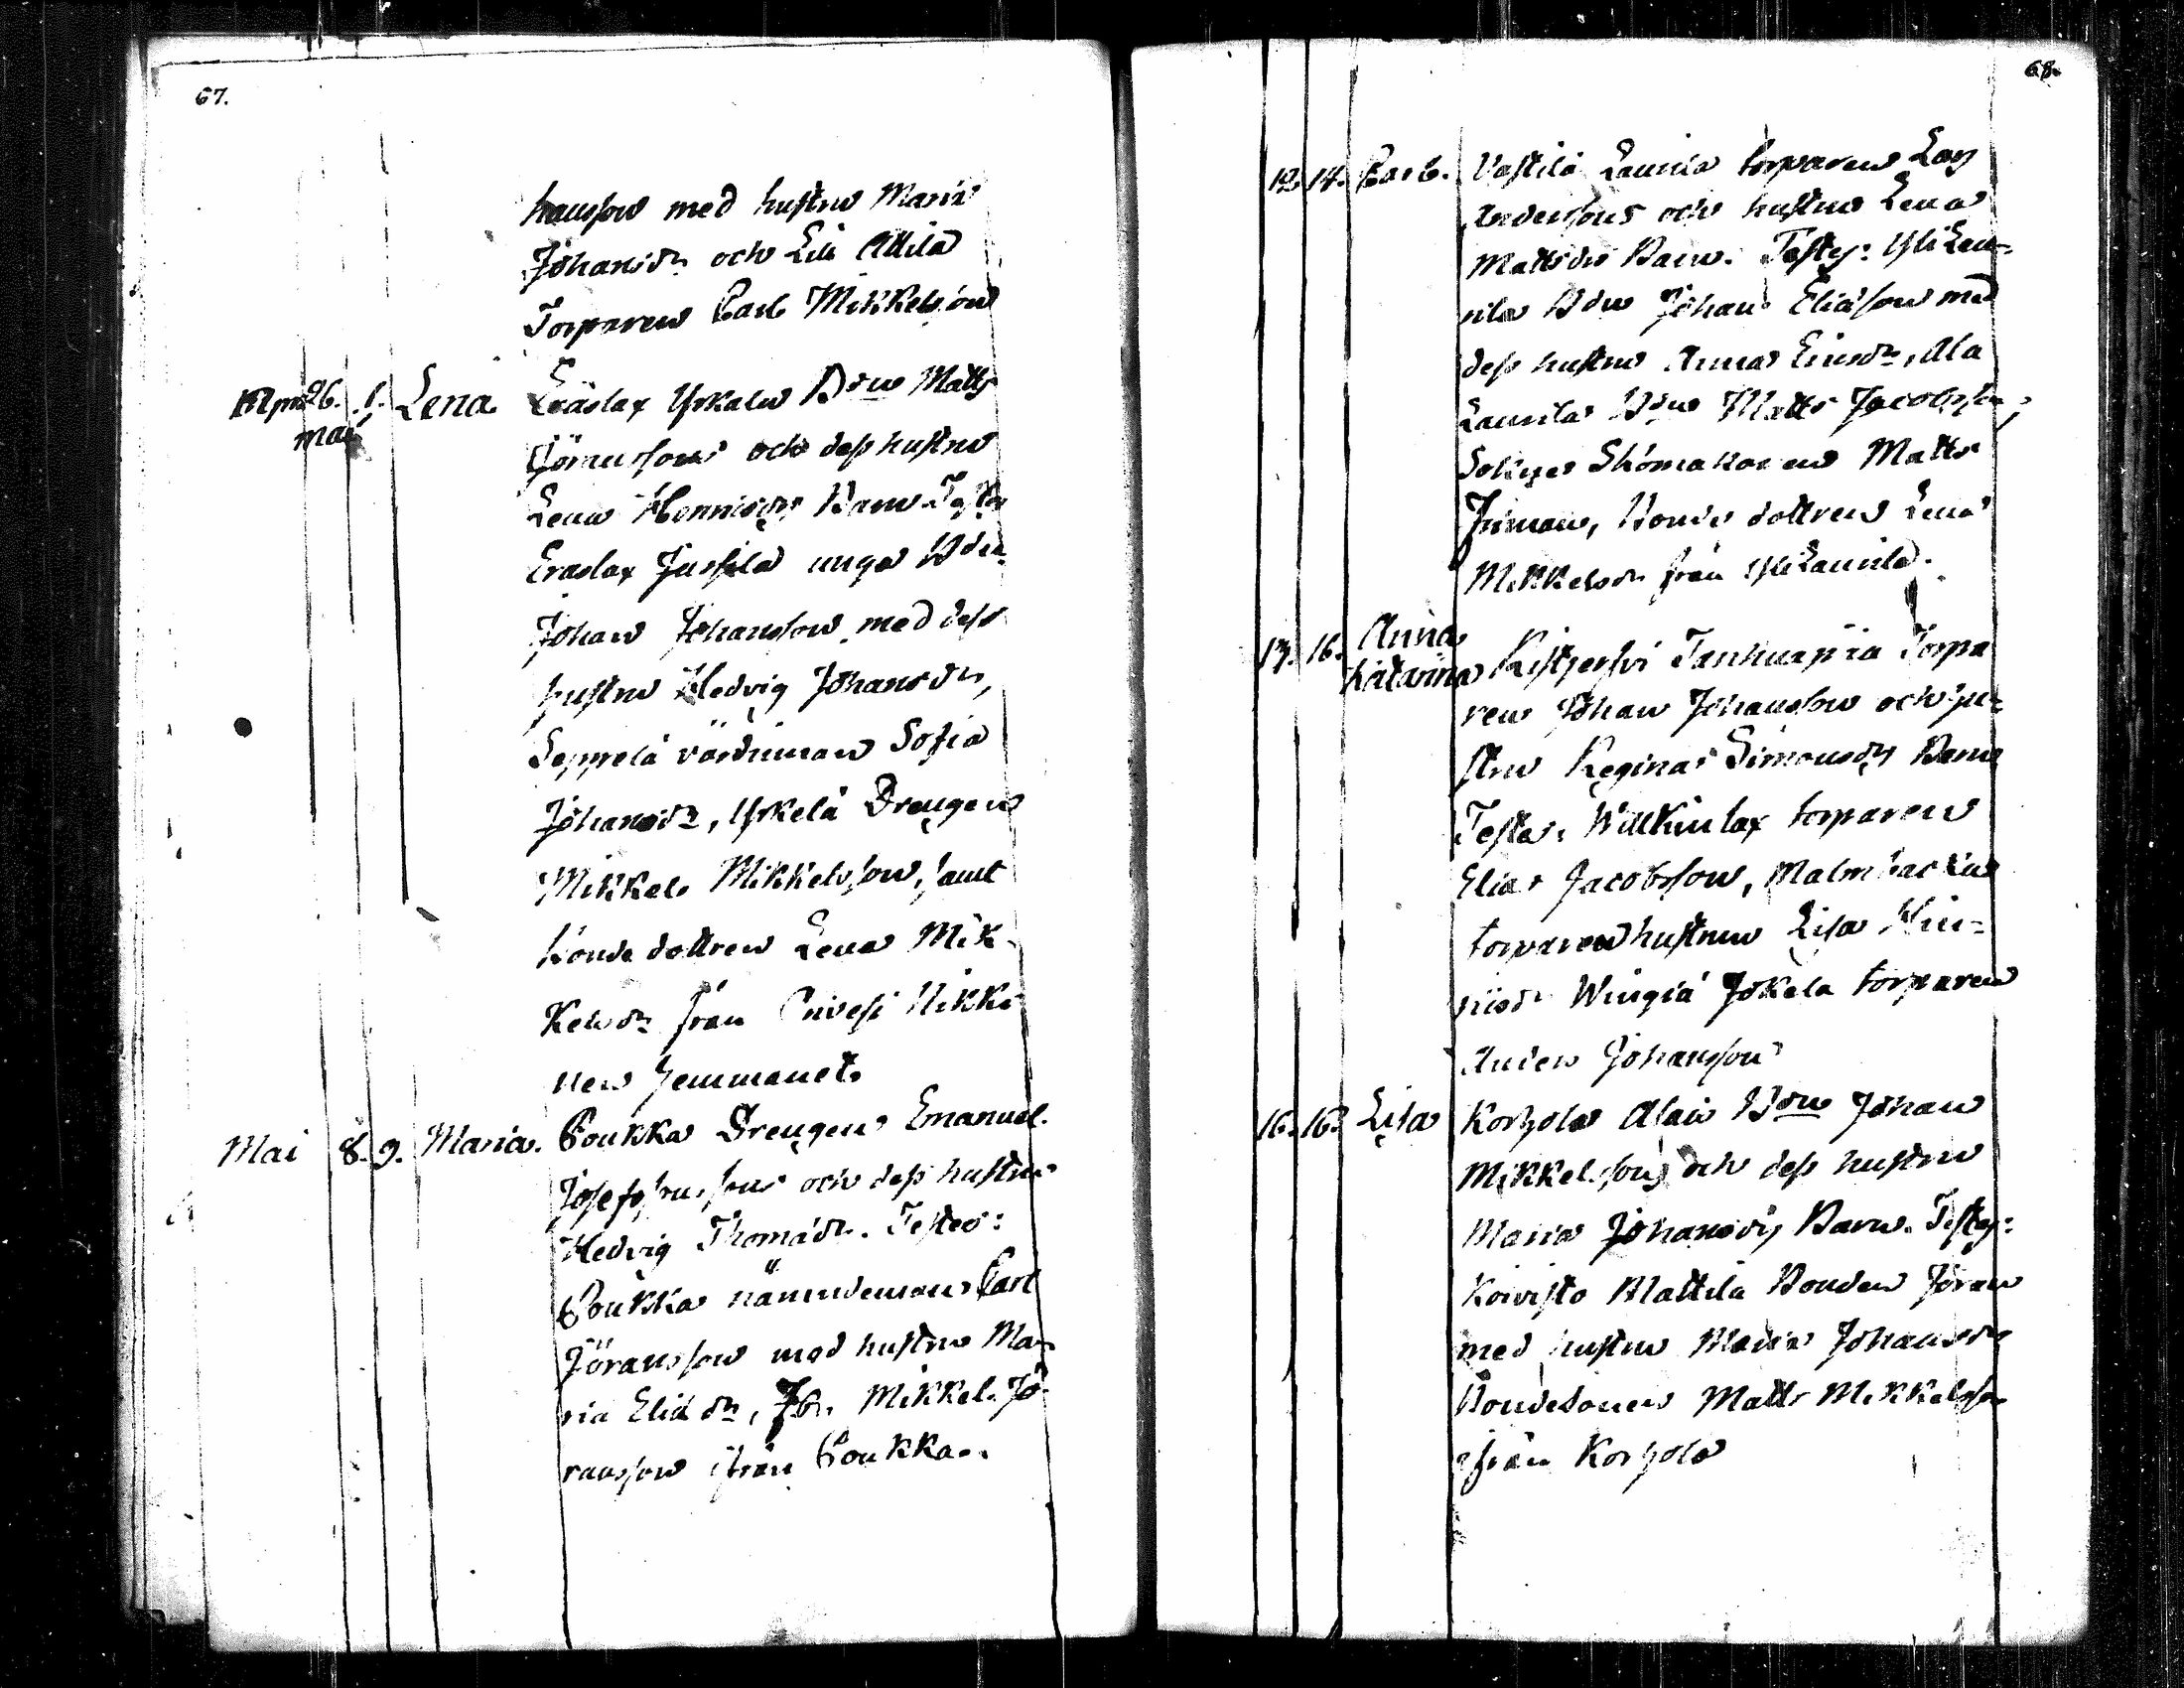 67.
hansson med hustru Maria
Johansdr och Lill Attila
Torparen Carl Mikkelsson
April 26. 1. Lena Eräslax Yrkälä Bdn Matts
Maii
Göranssons och dess hustru
Lena Henricsdrs Barn Testes
Eraslax Jussila unga Bdn
Johan Johansson med dess
hustru Hedvig Johansdr,
Seppelä värdinnan Sofia
Johansdr, Yrkelä Drengen
Mikkel Mikkelsson, samt
bonde dottren Lena Mik-
kelsdr från Nikki
nen hemmanet.
Mai 8. 9. Maria. Poukka Drengens Emanuel
Josephssons och dess hustrus
Hedvig Thomædr. Testes:
Poukka nämndeman Carl
Göransson med hustru Ma-
ria Eliædr, Mikkel Jö-
ransson ifrån Poukka.
68.
12. 14. Carl. Vestilä Laurila torparen
Anderssons och hustrus Lena
Mattsdrs Barn. Testes: Yli Lau-
rila Bdn Johan Eliasson med
dess hustru Anna Ericsdr, Ala
Laurila Bdn Matts Jacobsson,
Sokne Skomakaren Matts
Friman, Bonde dottren Lena
Mikkelsdr från Yli Laurila.
13. 16. Anna
Katarina Tanhuapää Torpa
ren Johan Johansson och hu-
stru Regina Simonsdrs Barn
Testes: Willkinlax torparen
Elias Jacobsson, Malmbacka
torparen hustrun Lisa Hin-
ricsdr Wingiä Jokela torparen
Anders Johansson
16. 16. Lisa Korhola Alain Bdn Johan
Mikkelssons och dess hustru
Maria Johansdrs Barn. Testes:
Koivisto Mattila Bonden Jöran
med hustru Maria Johansdr
Bondesonen Matts Mikkelsson
ifrån Korhola